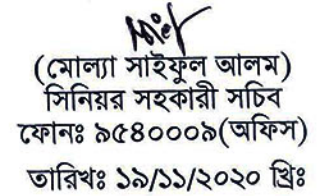 (মোল্যা সাইফুল আলম)
সিনিয়র সহকারী সচিব
ফোনঃ ৯৫৪০০০৯(অফিস)
তারিখঃ ১৯/১১/২০২০ খ্রিঃ